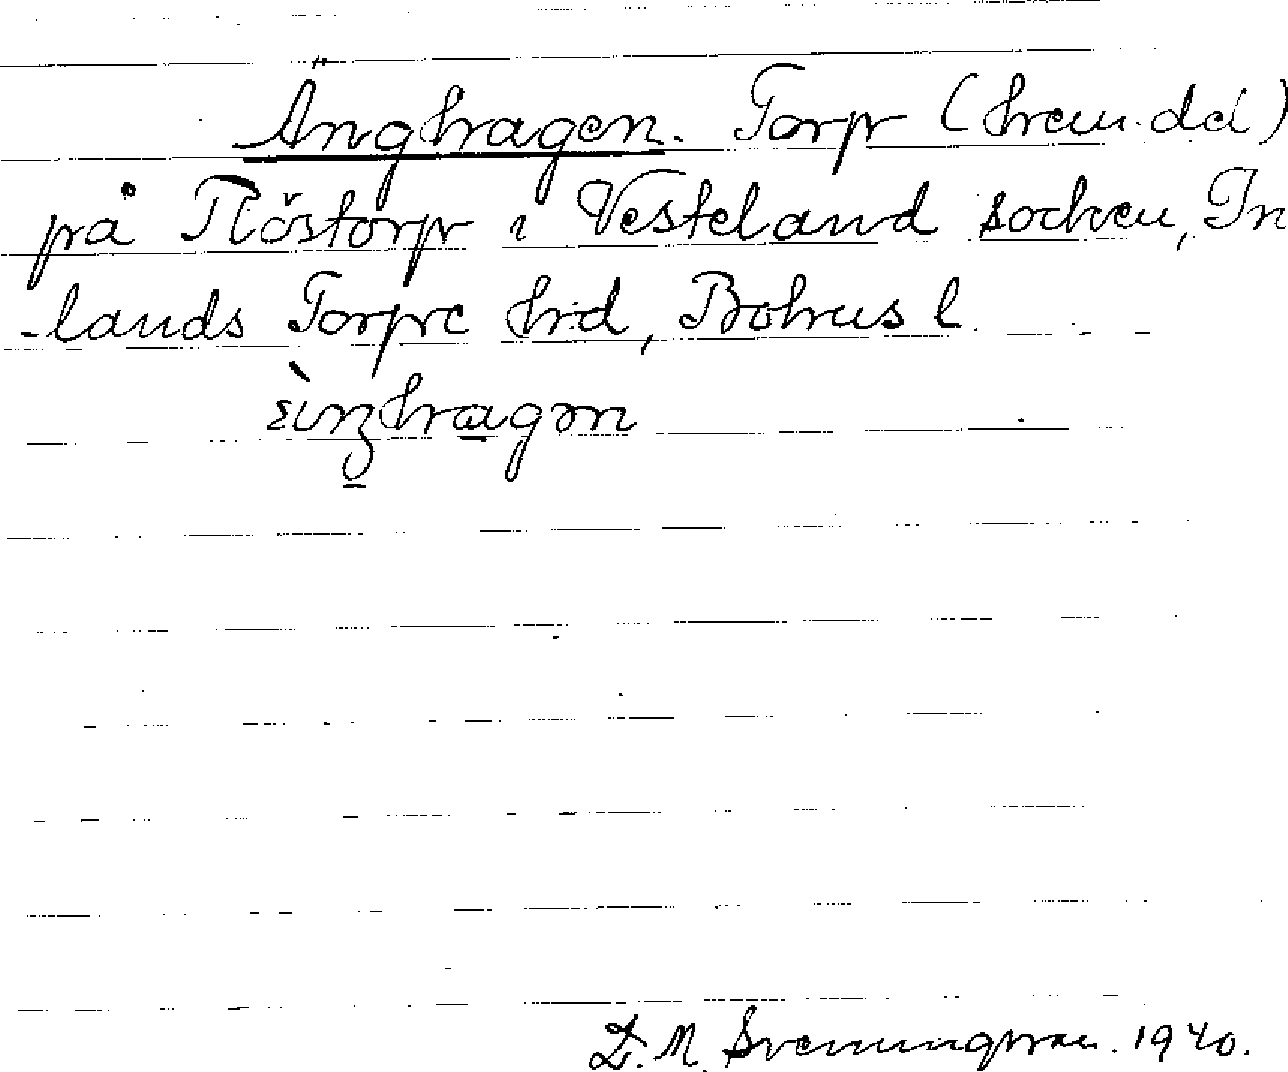 Änghagen. Torp (hem.del)
på Röstorp i Vesteland socken, In
-lands Torpe hd, Bohus l.
D. M. Svenningsson. 1940.